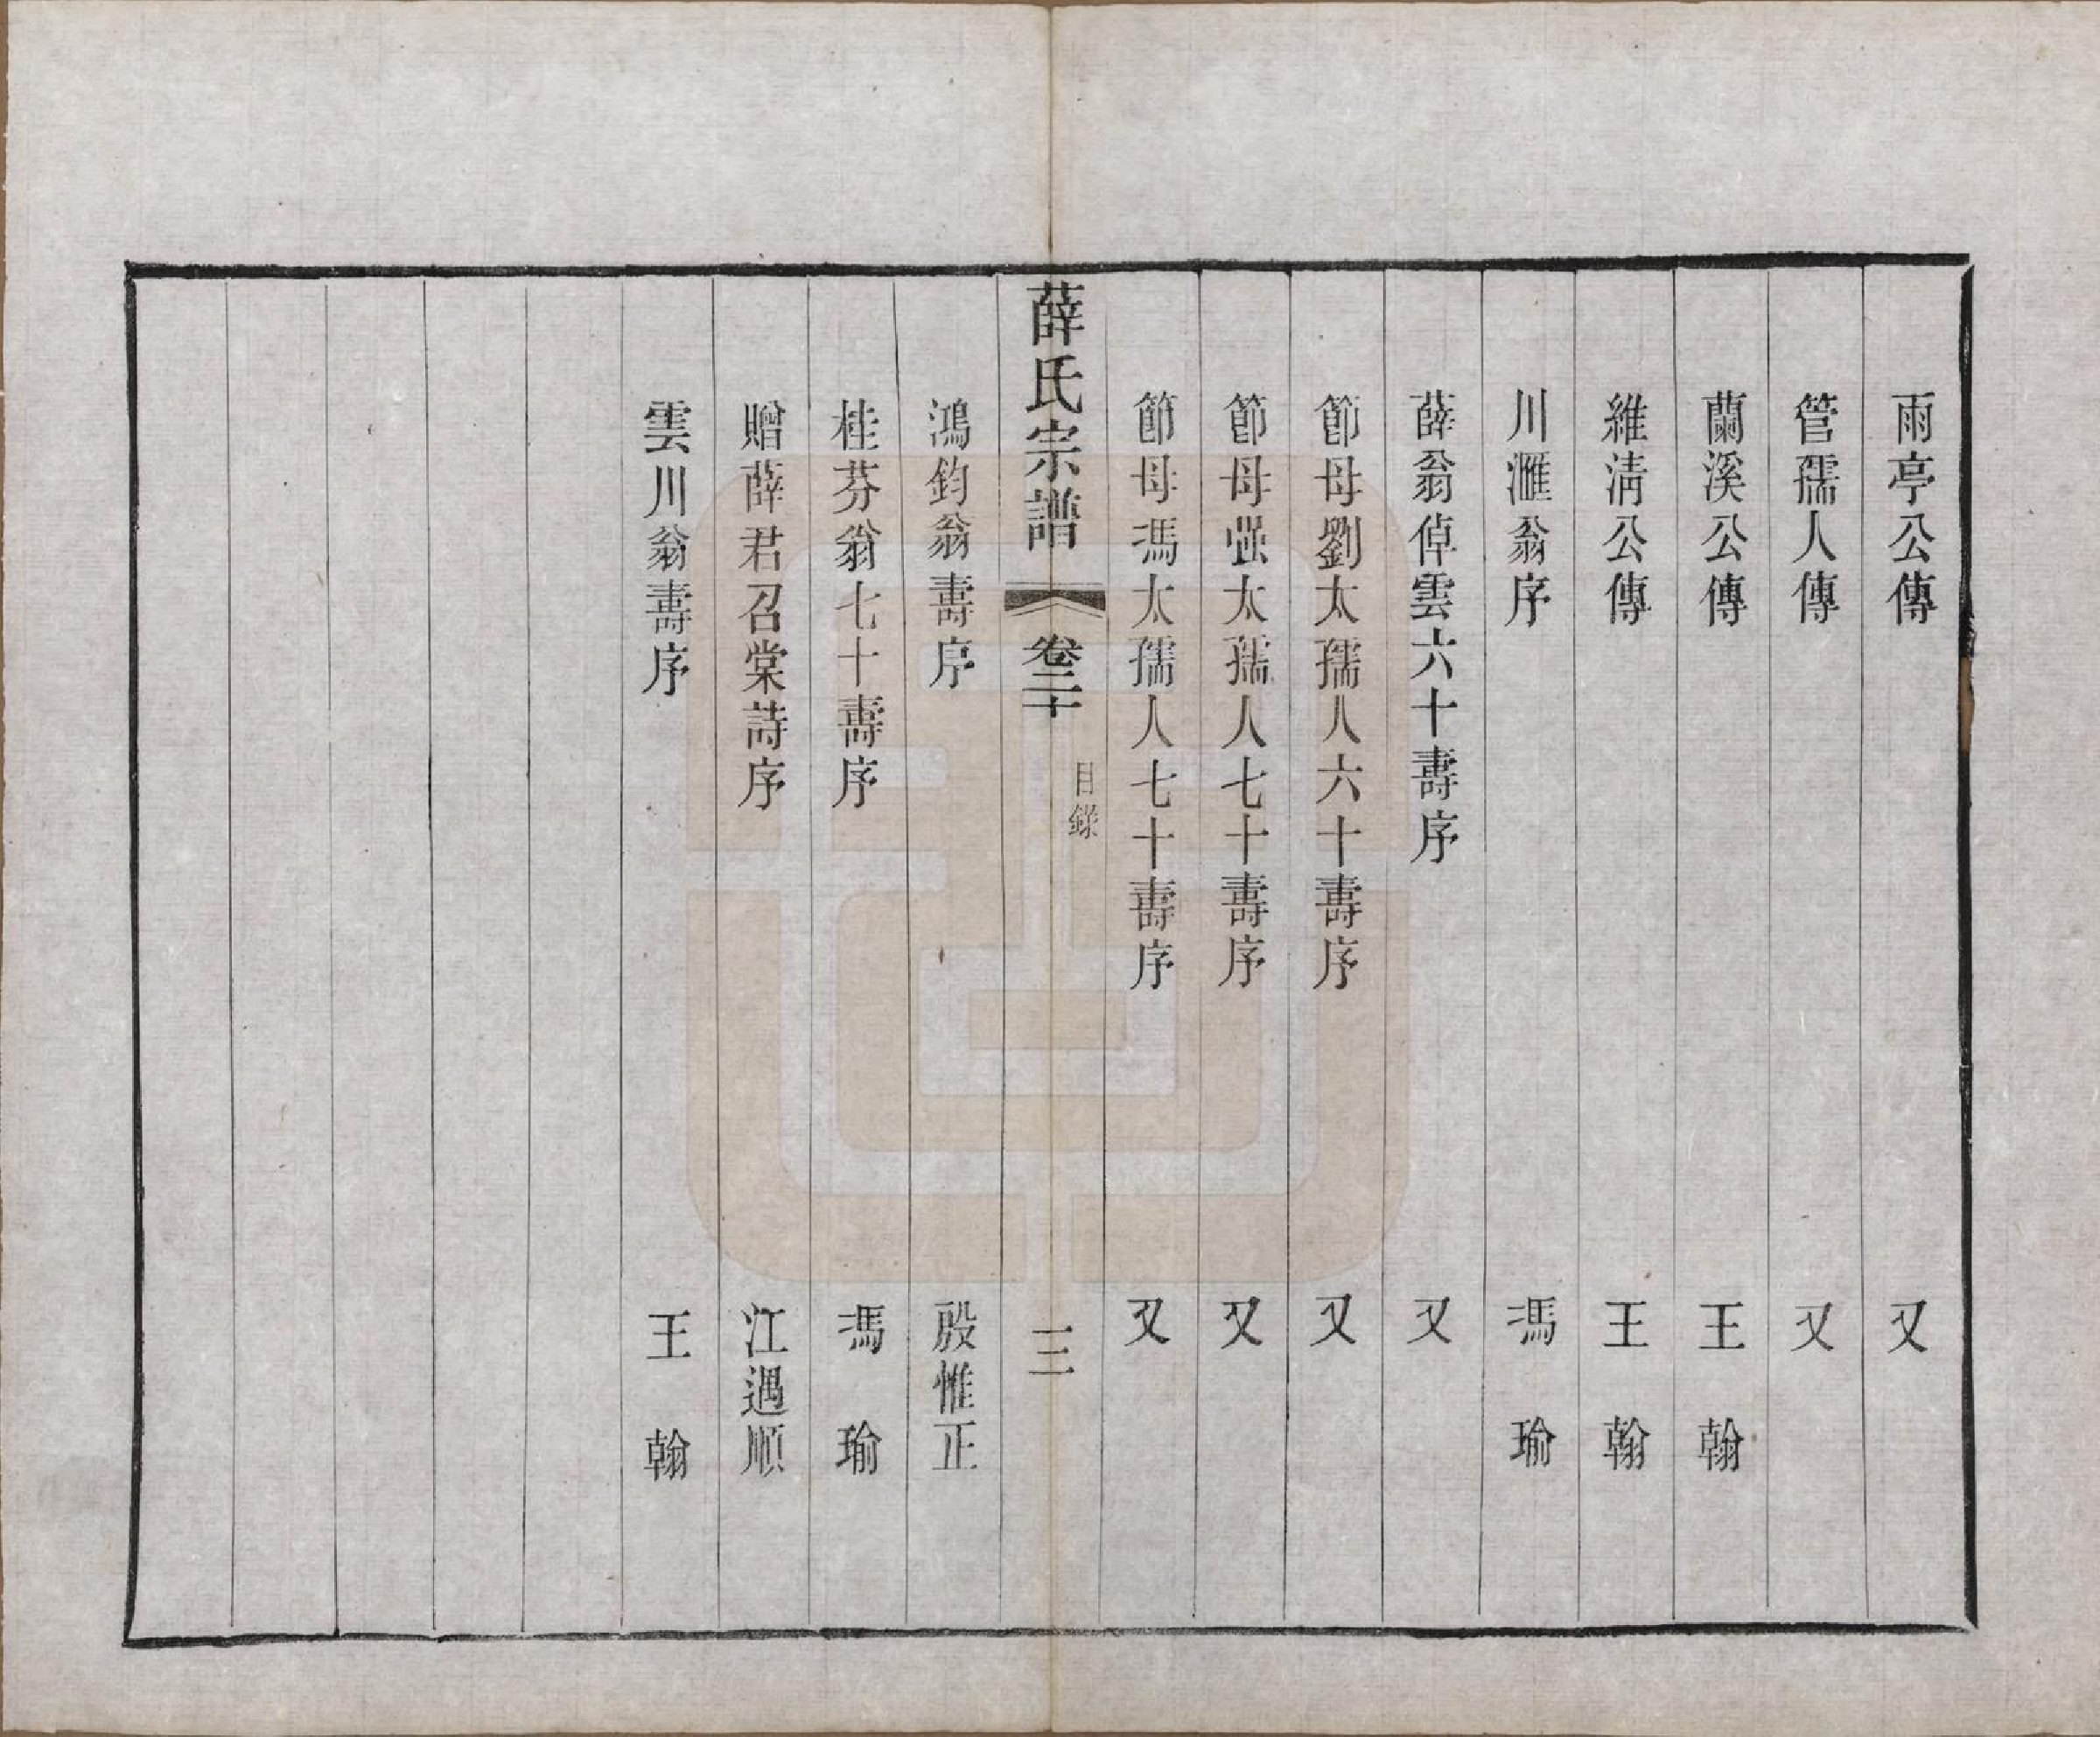 雨亭公傳 又
管孺人傳 又
蘭溪公傳 王翰
維淸公傳 王翰
川滙翁序 馮瑜
薛翁倬雲六十壽序 又
節母劉太孺人六十壽序 又
節母張太孺人七十壽序 又
節母馮太孺人七十壽序 又
薛氏宗譜 卷二十 目錄 三
鴻鈞翁壽序 殷惟正
桂芬翁七十壽序 馮瑜
贈薛君召棠詩序 江遇順
雲川翁壽序 王翰